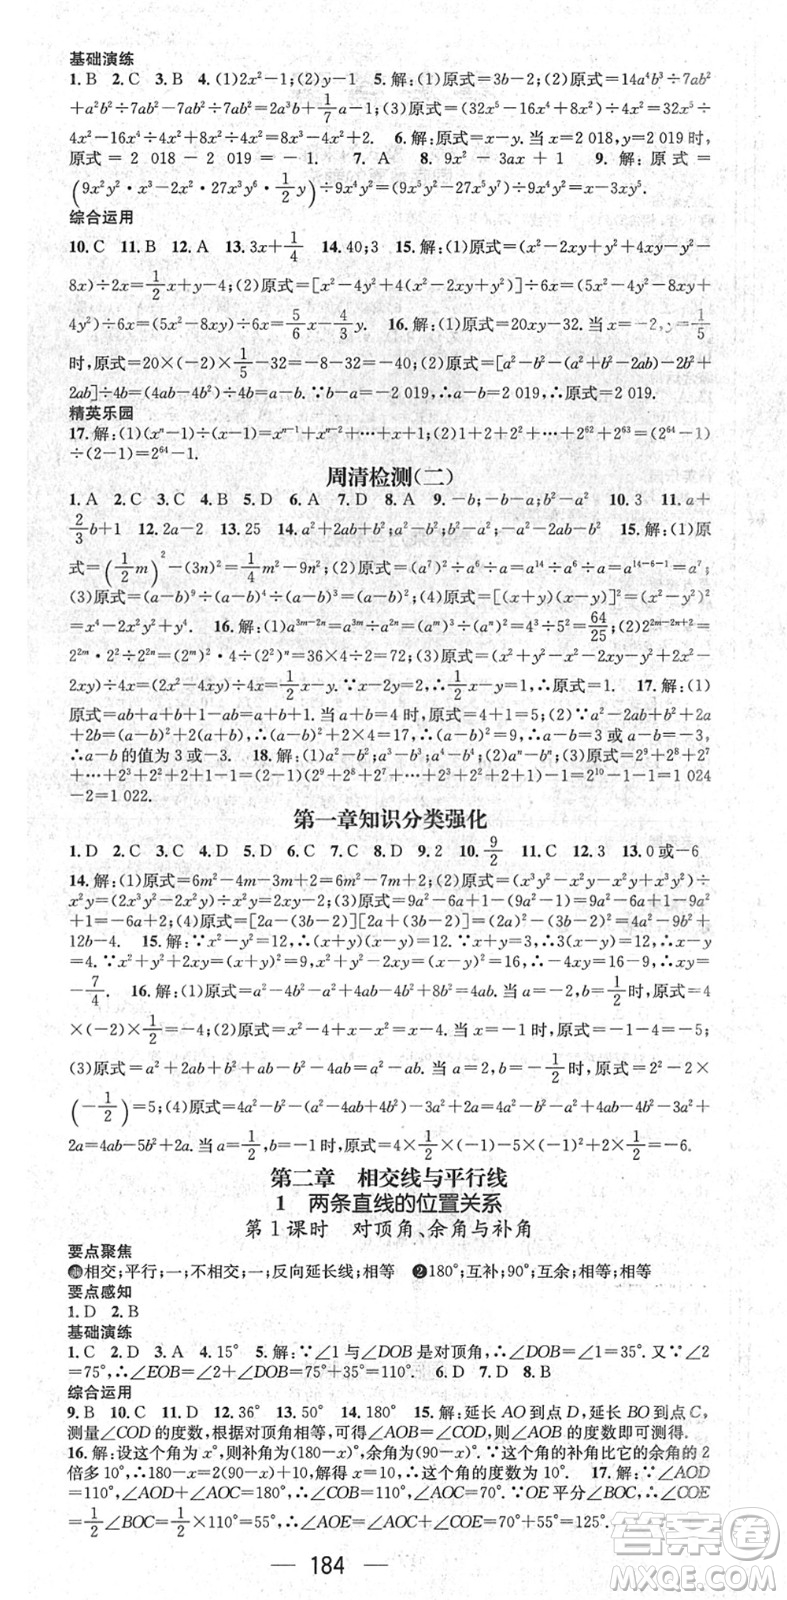 基础演练
1. B 2. C 3. B 4. (1)2x²-1;(2)y-1 5. 解:(1)原式=3b-2;(2)原式=14a⁴b³÷7ab²
+a²b²÷7ab²-7ab²÷7ab²=2a³b+1/7a-1;(3)原式=(32x⁵-16x⁴+8x³)÷4x²=32x⁵÷
4x²-16x⁴÷4x²+8x³÷4x²=8x³-4x²+2x. 6. 解:原式=x-y. 当 x=2 018,y=2 019 时,
原式=2 018-2 019=-1. 7. A 8. 9x²-3ax+1 9. 解:原式=
(9x²y²·x³-2x²·27x³y⁶·1/2y)÷9x⁴y²=(9x⁵y²-27x⁵y⁷)÷9x⁴y²=x-3xy⁵.
综合运用
10. C 11. B 12. A 13. 3x+1/4 14. 40;3 15. 解:(1)原式=(x²-2xy+y²-y²+4xy-
8x)÷2x=1/2x+y-4;(2)原式=[x²-4y²+4(x²-2xy+y²)]÷6x=(5x²-8xy+4y²-
4y²)÷6x=(5x²-8xy)÷6x=5/6x-4/3y. 16. 解:(1)原式=20xy-32. 当 x=-2,y=1/5
时,原式=20×(-2)×1/5-32=-8-32=-40;(2)原式=[a²-b²-(a²+b²-2ab)-2b²+2
ab]÷4b=(4ab-4b²)÷4b=a-b. ∵b-a=-2 019,∴a-b=2 019,∴原式=2 019.
精英乐园
17. 解:(1)(xⁿ-1)÷(x-1)=xⁿ⁻¹+xⁿ⁻²+…+x+1;(2)1+2+2²+…+2⁶²+2⁶³=(2⁶⁴-1)
÷(2-1)=2⁶⁴-1.
周清检测(二)
1. A 2. C 3. C 4. D 5. D 6. A 7. D 8. A 9. -b;-b;b²-a² 10. 3 11. a+
2/3b+1 12. 2a-2 13. 25 14. a²+2ab+b²;a²-b²;b²-a²;-a²-2ab-b² 15. 解:(1)原
式=(1/2m)²-(3n)²=1/4m²-9n²;(2)原式=(a⁷)²÷a⁶÷a=a¹⁴÷a⁶÷a=a¹⁴⁻⁶⁻¹=a⁷;
(3)原式=(a-b)⁹÷(a-b)⁴÷(a-b)³=(a-b)²;(4)原式=[(x+y)(x-y)]²=(x²-y²)²
=x⁴-2x²y²+y⁴. 16. 解:(1)a³ᵐ⁻²ⁿ=a³ᵐ÷a²ⁿ=(aᵐ)³÷(aⁿ)²=4³÷5²=64/25;(2)2²ᵐ⁺ⁿ⁺¹
=2²ᵐ·2ⁿ·2=(2ᵐ)²·2ⁿ·2=36×4×2=72;(3)原式=(x²+y²-x²+2xy-y²+2xy-
2y²)÷4x=(2x²-4xy)÷4x=1/2x-y. ∵x-2y=2,∴1/2x-y=1,∴原式=1. 17. 解:(1)
原式=ab+a+b+1-ab=a+b+1. 当 a+b=4 时,原式=4+1=5;(2)∵a²-2ab+b²+2a
+2b=a²+2ab+b²+2(a+b)-4ab=4²+2×4-4ab=24-4ab,∴a-b=3 或 a-b=-3,
∴a-b 的值为 3 或-3. 18. 解:(1)a²-b²;a³-b³;a⁴-b⁴;(2)aⁿ-bⁿ;(3)原式=2⁹+2⁸+2⁷
+…+2³+2²+2+1-1=(2-1)(2⁹+2⁸+2⁷+…+2³+2²+2+1)-1=2¹⁰-1-1=1 024
-2=1 022.
第一章知识分类强化
1. D 2. C 3. C 4. A 5. D 6. D 7. C 8. D 9. 2 10. 9/2 11. C 12. 3 13. 0 或-6
14. 解:(1)原式=6m²-4m-3m+2=6m²-7m+2;(2)原式=(x³y²-x²y-x²y+x³y²)÷
x²y=(2x³y²-2x²y)÷x²y=2xy-2;(3)原式=9a²-6a+1-(9a²-1)=9a²-6a+1-9a²
+1=-6a+2;(4)原式=[2a-(3b-2)][2a+(3b-2)]=(2a)²-(3b-2)²=4a²-9b²+
12b-4. 15. 解:∵x²-y²=12,∴(x+y)(x-y)=12,∵x+y=3,∴3(x-y)=12,∴x-y
=4. ∵x²+y²+2xy=(x+y)²=9,x²+y²-2xy=(x-y)²=16,∴4xy=9-16=-7,∴xy=
-7/4. 16. 解:(1)原式=a²-4b²-a²+4ab-4b²+8b²=4ab. 当 a=-2,b=1/2 时,原式=4
×(-2)×1/2=-4;(2)原式=x²-x²-4-x=-x-4. 当 x=1 时,原式=-1-4=-5;
(3)原式=a²+2ab+b²+ab-b²-3ab=a². 当 a=-2,b=-1/2 时,原式=
(-1/2)=5;(4)原式=4a²-b²-(a²-4ab+4b²)-3a²+ab+2a=4a²-b²-a²+4ab-4b²-3a²+ab+
2a=4ab-5b²+2a. 当 a=1/2,b=-1 时,原式=4×1/2×(-1)-5×(-1)²+2×1/2=-6.
第二章 相交线与平行线
1 两条直线的位置关系
第 1 课时 对顶角、余角与补角
要点聚焦
相交;平行;一;不相交;一;反向延长线;相等 ❷180°;互补;90°;互余;相等;相等
要点感知
1. D 2. B
基础演练
1. C 2. D 3. A 4. 15° 5. 解:∵∠1 与∠DOB 是对顶角,∴∠DOB=∠1=35°. 又∵∠2
=75°,∴∠EOB=∠2+∠DOB=75°+35°=110°. 6. D 7. D 8. B
综合运用
9. B 10. C 11. D 12. 36° 13. 50° 14. 180° 15. 解:延长 AO 到点 D,延长 BO 到点 C,
测量∠COD 的度数,根据对顶角相等,可得∠AOB=∠COD,∠AOB 的度数即可测得.
16. 解:设这个角为 x°,则补角为(180-x)°,余角为(90-x)°. ∵这个角的补角比它的余角的 2
倍多 10°,∴180-x=2(90-x)+10. 解得 x=10,∴这个角的度数为 10°. 17. 解:∵∠AOD
=110°,∠AOD+∠AOC=180°,∴∠AOC=70°. ∵OE 平分∠BOC,∴∠COE=∠BOE
=1/2∠BOC=1/2×110°=55°,∴∠AOE=∠AOC+∠COE=70°+55°=125°.
184
答案圈
MXQE.COM